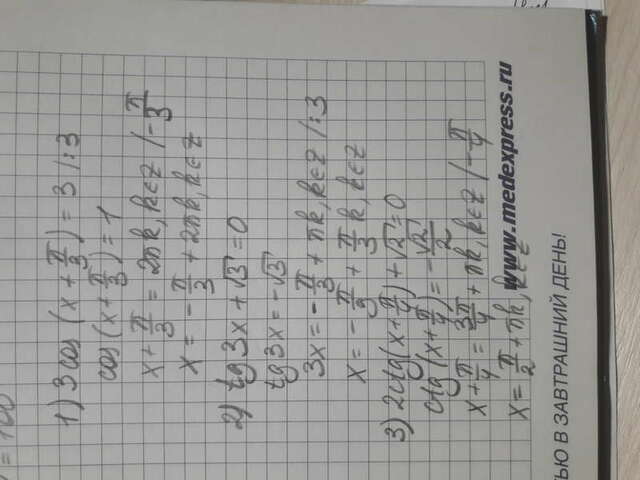 = 100
1) 3 cos (x + π/3) = 3 /:3
cos (x + π/3) = 1
x + π/3 = 2πk, k∈Z / -π/3
x = -π/3 + 2πk, k∈Z
2) tg 3x + √3 = 0
tg 3x = -√3
3x = -π/3 + πk, k∈Z /:3
x = -π/9 + π/3 k, k∈Z
3) 2ctg(x + π/4) + √2 = 0
ctg(x + π/4) = -√2/2
x + π/4 = 3π/4 + πk, k∈Z / -π/4
x = π/2 + πk, k∈Z
www.medexpress.ru
ТЬЮ В ЗАВТРАШНИЙ ДЕНЬ!